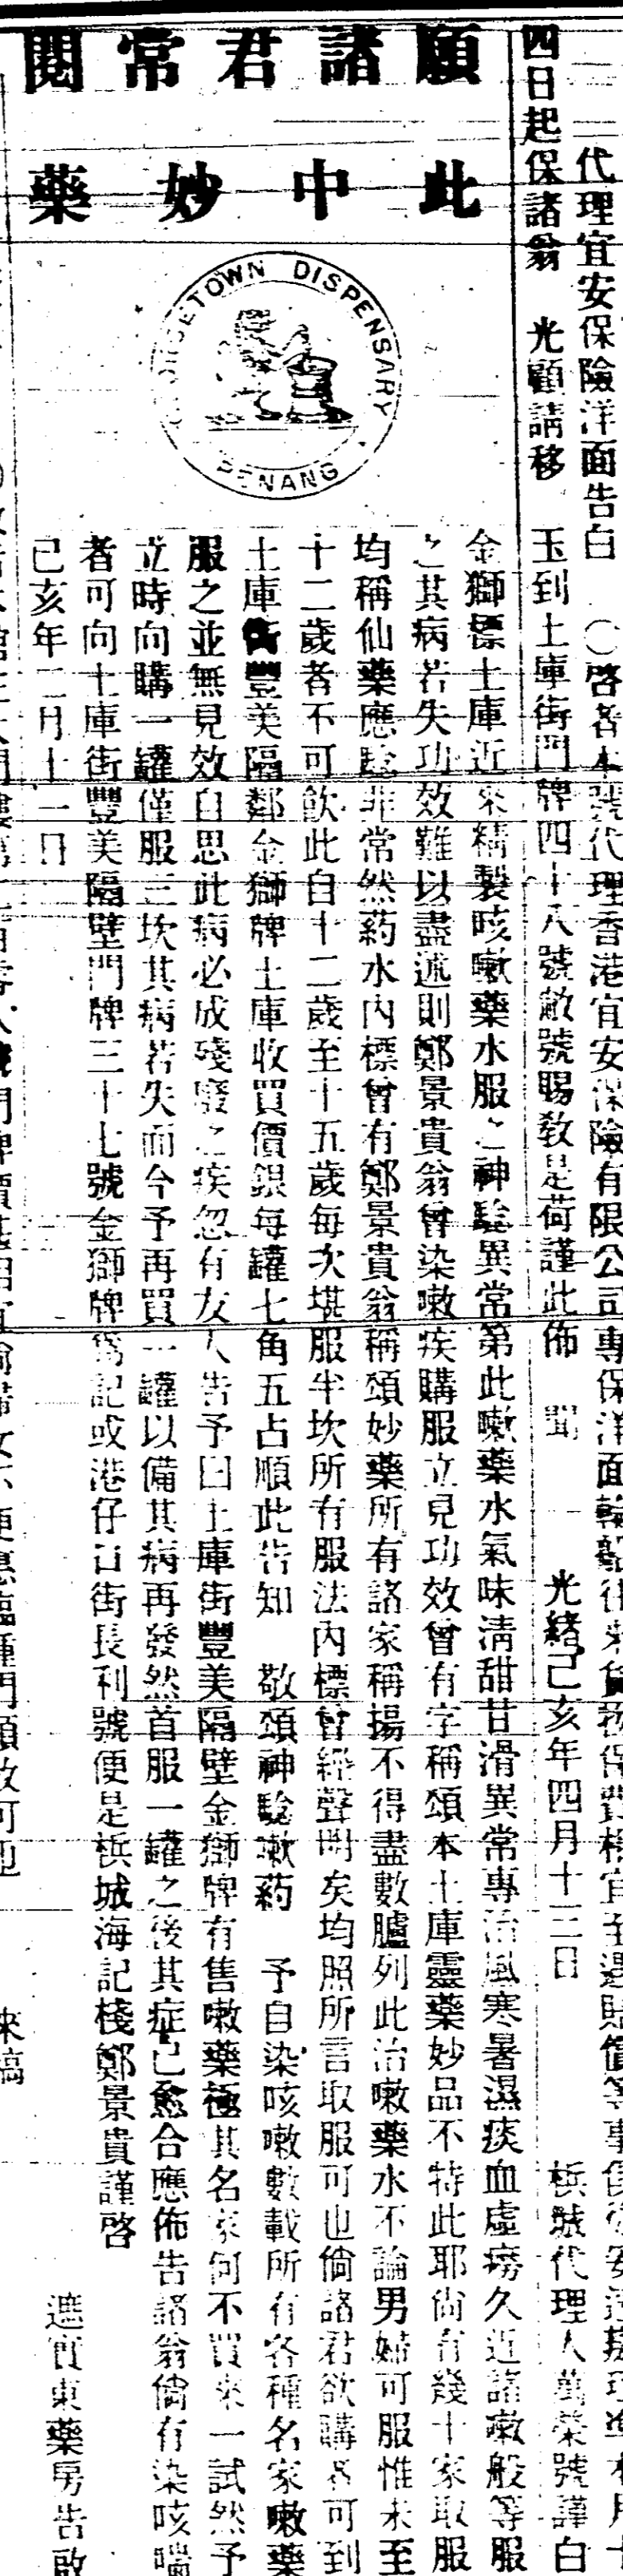 代理宜安保險洋面告白 ○啓者本號代理香港宜安保險有限公司專保洋面輪船往來貨物保費相宜
四日起保諸翁 光顧請移 玉到土庫街門牌四十八號敝號賜敎是荷謹此佈 聞 光緒己亥年四月十三日 檳城代理人萬榮號謹白
願諸君常閱
此中妙藥
GEORGETOWN DISPENSARY
PENANG
金獅標土庫近來精製咳嗽藥水服之神騐異常第此嗽藥水氣味淸甜甘滑異常專治風寒暑濕痰血虛癆久近諸嗽般等服
之其病若失功效難以盡述則鄭景貴翁曾染嗽疾購服立見功效曾有字稱頌本土庫靈藥妙品不特此耶尙有幾十家取服
均稱仙藥應騐非常然葯水內標曾有鄭景貴翁稱頌妙藥所有諸家稱揚不得盡數臚列此治嗽藥水不論男婦可服惟未至
十二歲者不可飮此自十二歲至十五歲每次堪服半坎所有服法內標曾經聲明矣均照所言取服可也倘諸君欲購者可到
土庫街豐美隔鄰金獅牌土庫收買價銀每罐七角五占順此告知 敬頌神騐嗽葯 予自染咳嗽數載所有各種名家嗽藥
服之並無見效自思此病必成殘廢之疾忽有友人告予曰土庫街豐美隔壁金獅牌有售嗽藥極其名家何不買來一試然予
立時向購一罐僅服三坎其病若失而今予再買一罐以備其病再發然首服一罐之後其症已愈合應佈告諸翁倘有染咳喘
者可向土庫街豐美隔壁門牌三十七號金獅牌爲記或港仔口街長利號便是檳城海記棧鄭景貴謹啓
己亥年二月十一日 遮實東藥房告啟
來稿